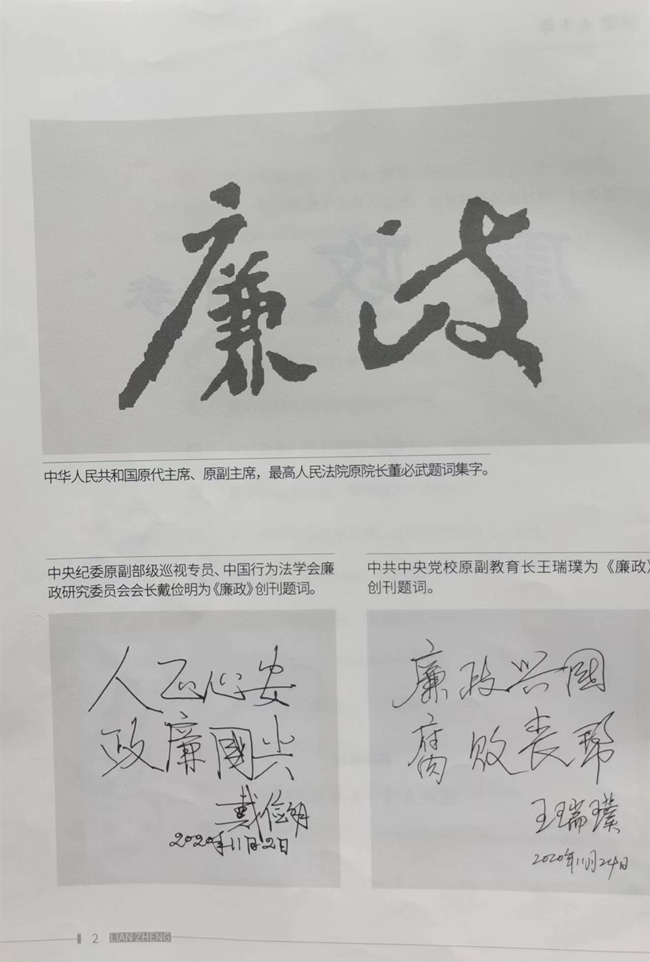 廉政
中华人民共和国原代主席、原副主席，最高人民法院原院长董必武题词集字。
中央纪委原副部级巡视专员、中国行为法学会廉
政研究委员会会长戴俭明为《廉政》创刊题词。
人正心安
政廉國兴
戴俭明
2020年11月2日
中共中央党校原副教育长王瑞璞为《廉政》
创刊题词。
廉政兴國
腐败丧邦
王瑞璞
2020年11月24日
2 LIAN ZHENG